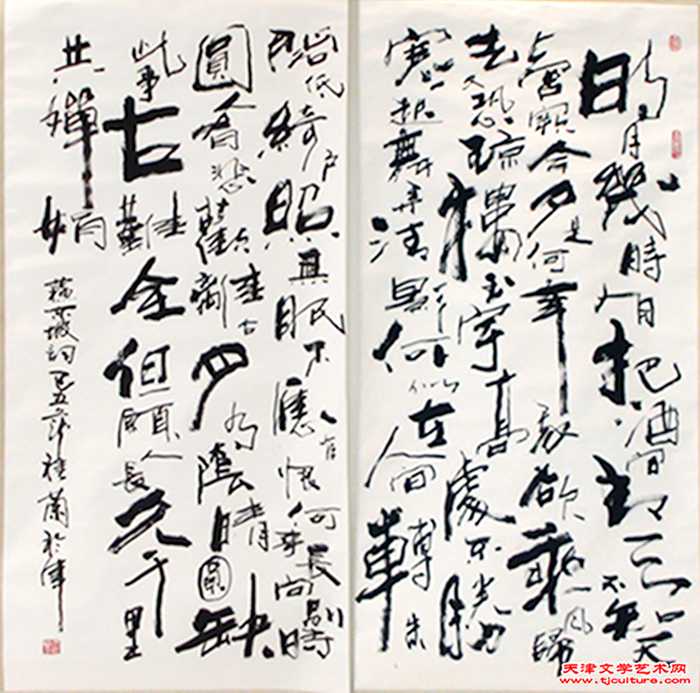 明月幾時有把酒問青天不知天
上宮闕今夕是何年我欲乘風歸
去又恐瓊樓玉宇高處不勝
寒起舞弄清影何似在人間轉朱
閣低綺戶照無眠不應有恨何事長向別時
圓人有悲歡離合月有陰晴圓缺
此事古難全但願人長久千里
共嬋娟
蘇東坡詞己丑桂蘭於津
天津文学艺术网
www.tjculture.com